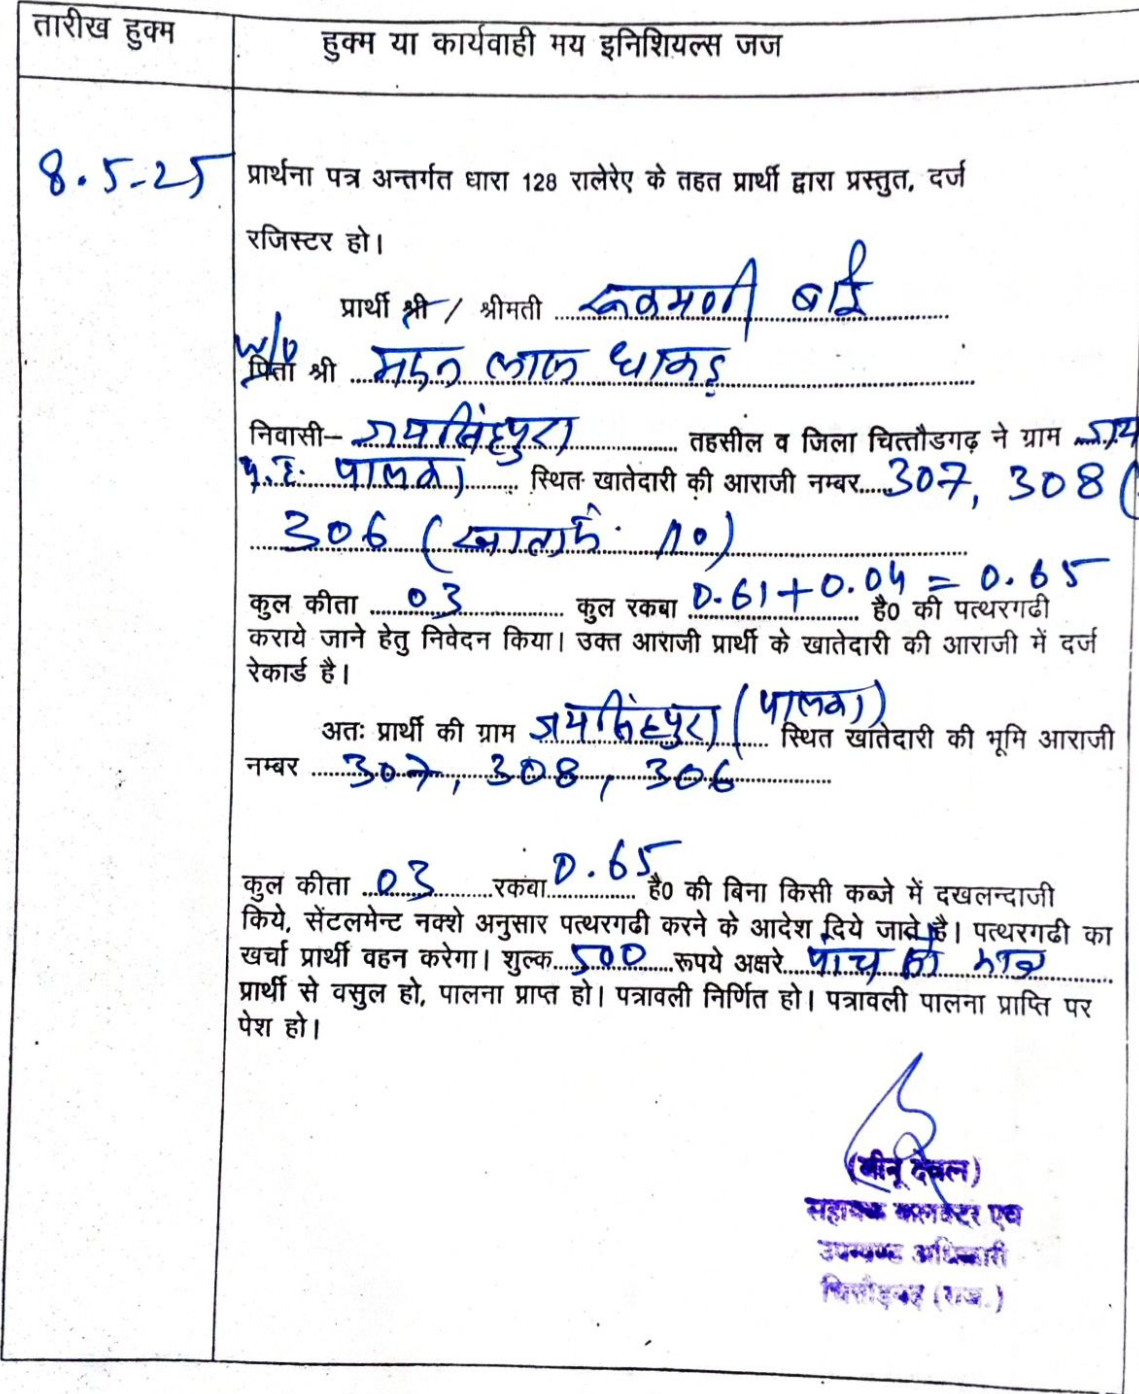 तारीख हुक्म
हुक्म या कार्यवाही मय इनिशियल्स जज
8.5-25
प्रार्थना पत्र अन्तर्गत धारा 128 रालेरेए के तहत प्रार्थी द्वारा प्रस्तुत, दर्ज
रजिस्टर हो।
प्रार्थी श्री / श्रीमती रूकमणी बाई
w/o
पिता श्री मदन लाल धाकड़
निवासी– जयसिंहपुरा तहसील व जिला चित्तौडगढ़ ने ग्राम जय
प.ह. पालका स्थित खातेदारी की आराजी नम्बर 307, 308 (
306 (
कुल कीता 03 कुल रकबा 0.61+0.04 = 0.65 है0 की पत्थरगढी
कराये जाने हेतु निवेदन किया। उक्त आराजी प्रार्थी के खातेदारी की आराजी में दर्ज
रेकार्ड है।
अतः प्रार्थी की ग्राम जयसिंहपुरा (पालका) स्थित खातेदारी की भूमि आराजी
नम्बर 307, 308, 306
कुल कीता 03 रकबा 0.65 है0 की बिना किसी कब्जे में दखलन्दाजी
किये, सेंटलमेन्ट नक्शे अनुसार पत्थरगढी करने के आदेश दिये जाते है। पत्थरगढी का
खर्चा प्रार्थी वहन करेगा। शुल्क 500 रूपये अक्षरे पांच सौ मात्र
प्रार्थी से वसुल हो, पालना प्राप्त हो। पत्रावली निर्णित हो। पत्रावली पालना प्राप्ति पर
पेश हो।
(बीनू देवल)
सहायक कलक्टर एवं
उपखण्ड अधिकारी
चित्तौड़गढ़ (राज.)